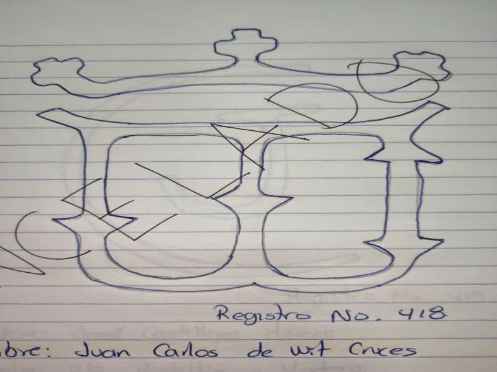 Registro No. 418
bre: Juan Carlos de wit Cruces